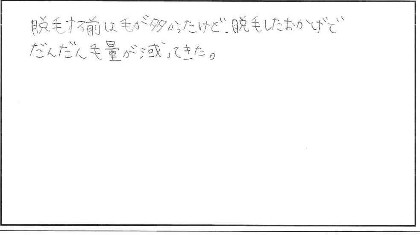 脱毛する前は毛が多かったけど、脱毛したおかげで
だんだん毛量が減ってきた。